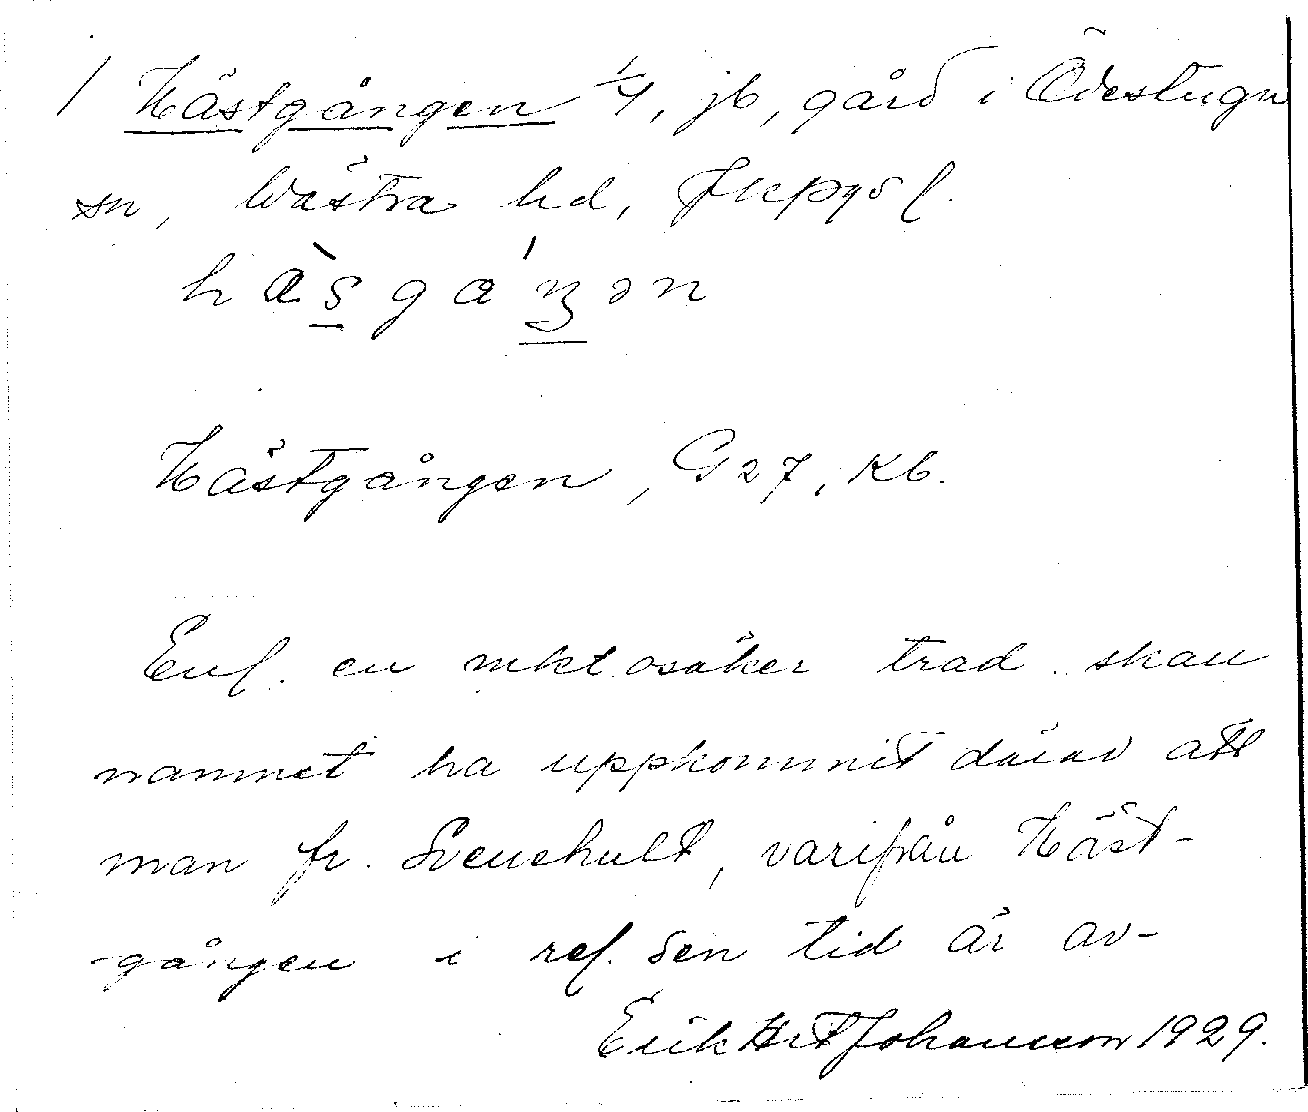 / Hästgången 1/4, jb, gård i Ödestugu
sn, Västra hd, Jkpgs l.
hàsgáŋən
Hästgången, G27, Kb.
Enl. en mkt osäker trad. skau
namnet ha uppkommit därav att
man fr. Svenshult, varifrån Häst-
-gången i rel. sen tid är av-
Erik Johansson 1929.